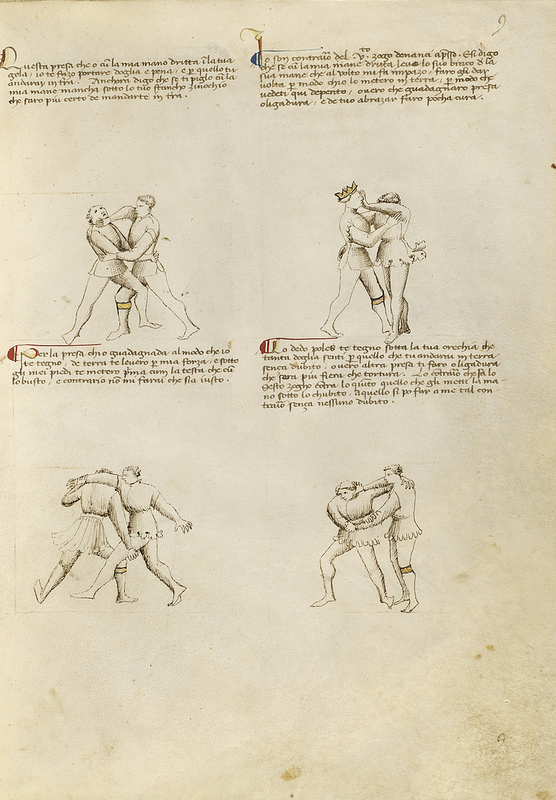 9
Questa presa che o cum la mia mano dritta in la tua
gola, io te fazo portare doglia e pena, e per quello tu
andaray in tera. Anchora digo che se ti piglo cum la
mia mano mancha sotto lo tuo stancho zinochio
che saro piu certo de mandarte in tera.
Io son contrario del V.to zogo denanci apresso. E si digo
che se cum la mia mane dritta levo lo suo brazo de la
sua mane che al volto mi fa impazo, farogli dar
volta per modo chio lo metero in terra, per modo che
vedeti qui depento, overo che guadagnaro presa
o ligadura, e de tuo abrazar faro pocha cura.
Per la presa chio guadagnada al modo che io
te tegno, de terra te levero per mia forza, e sotto
gli mei piedi te metero prima cum la testa che cum
lo busto, e contrario non mi farai che sia iusto.
Lo dedo poles te tegno sotta la tua orechia che
tanta doglia senti per quello che tu andarai in terra
senza dubito, overo altra presa ti faro o ligadura
che sera piu fiera che tortura. Lo contrario che fa lo
sesto zogho contra lo quito quello che gli mette la ma-
no sotto lo chubito, aquello si po far a me tal con-
trario senza nessuno dubito.